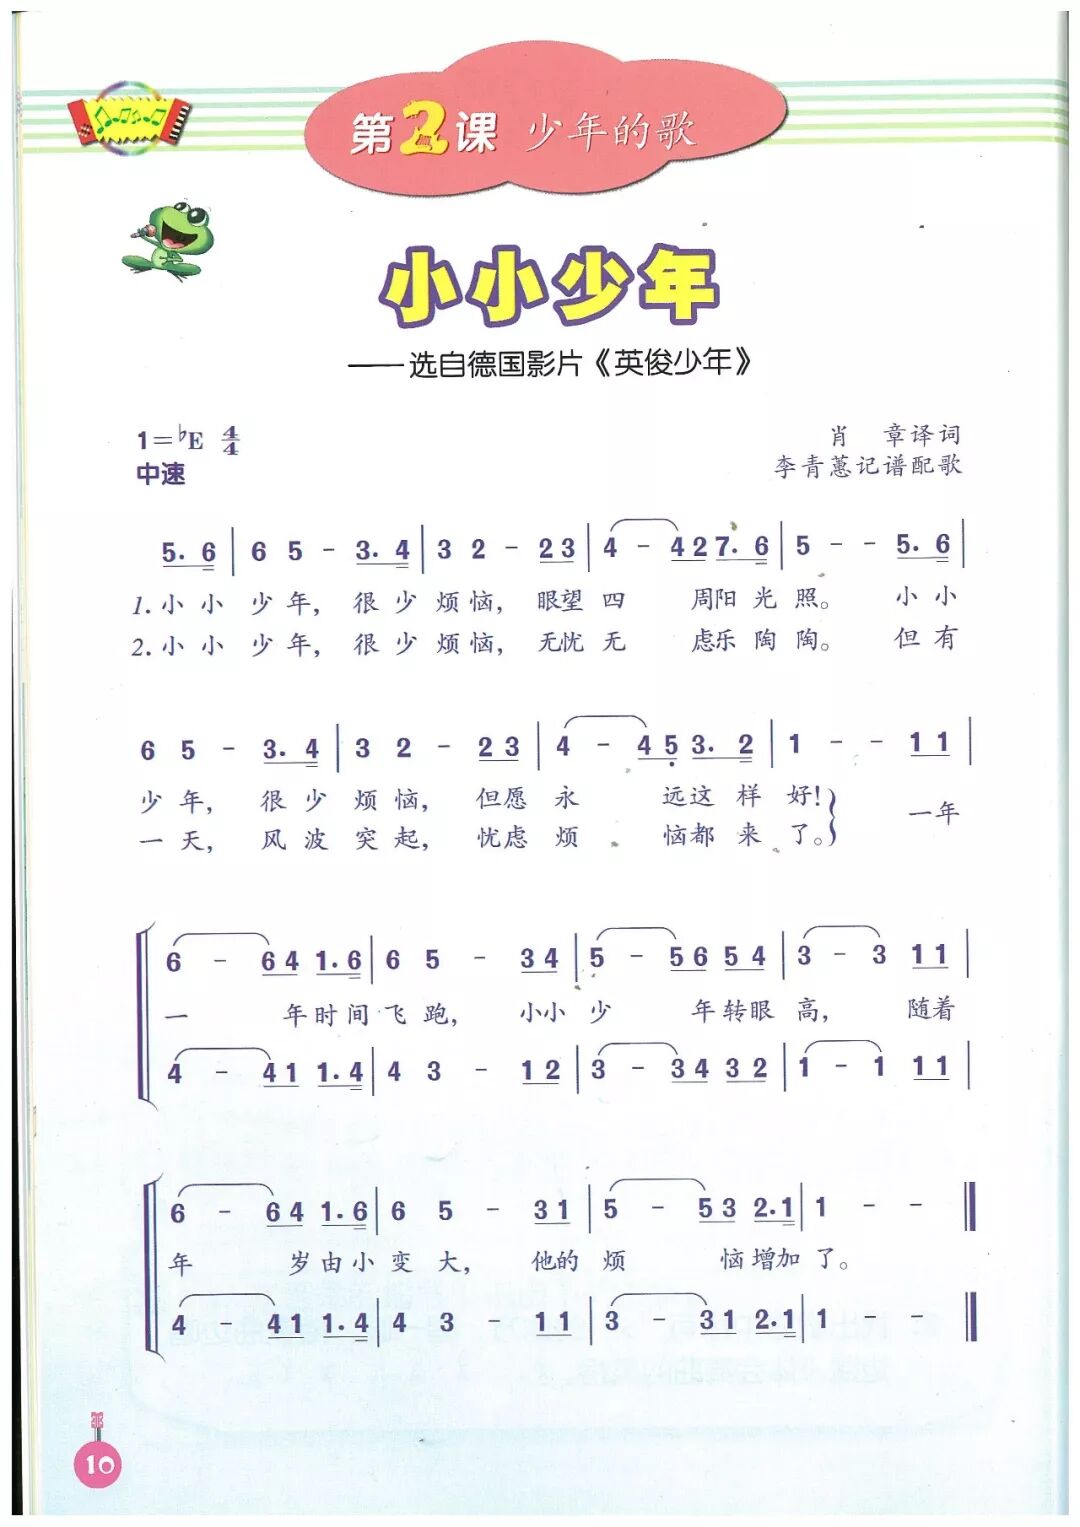 第2课 少年的歌
小小少年
——选自德国影片《英俊少年》
1=♭E 4/4
中速
肖 章译词
李青蕙记谱配歌
5. 6 | 6 5 - 3. 4 | 3 2 - 2 3 | 4 - 4 2 7. 6 | 5 - - 5. 6 |
1. 小 小 少 年, 很 少 烦 恼, 眼望 四 周阳 光 照。 小 小
2. 小 小 少 年, 很 少 烦 恼, 无忧 无 虑乐 陶 陶。 但 有
6 5 - 3. 4 | 3 2 - 2 3 | 4 - 4 5 3. 2 | 1 - - 1 1 |
少 年, 很 少 烦 恼, 但愿 永 远这 样 好!
一 天, 风 波 突 起, 忧虑 烦 恼都 来 了。
一年
6 - 6 4 1. 6 | 6 5 - 3 4 | 5 - 5 6 5 4 | 3 - 3 1 1 |
一 年时 间 飞 跑, 小小 少 年转 眼 高, 随着
4 - 4 1 1. 4 | 4 3 - 1 2 | 3 - 3 4 3 2 | 1 - 1 1 1 |
6 - 6 4 1. 6 | 6 5 - 3 1 | 5 - 5 3 2. 1 | 1 - -
年 岁由 小 变 大, 他的 烦 恼增 加 了。
4 - 4 1 1. 4 | 4 3 - 1 1 | 3 - 3 1 2. 1 | 1 - -
10